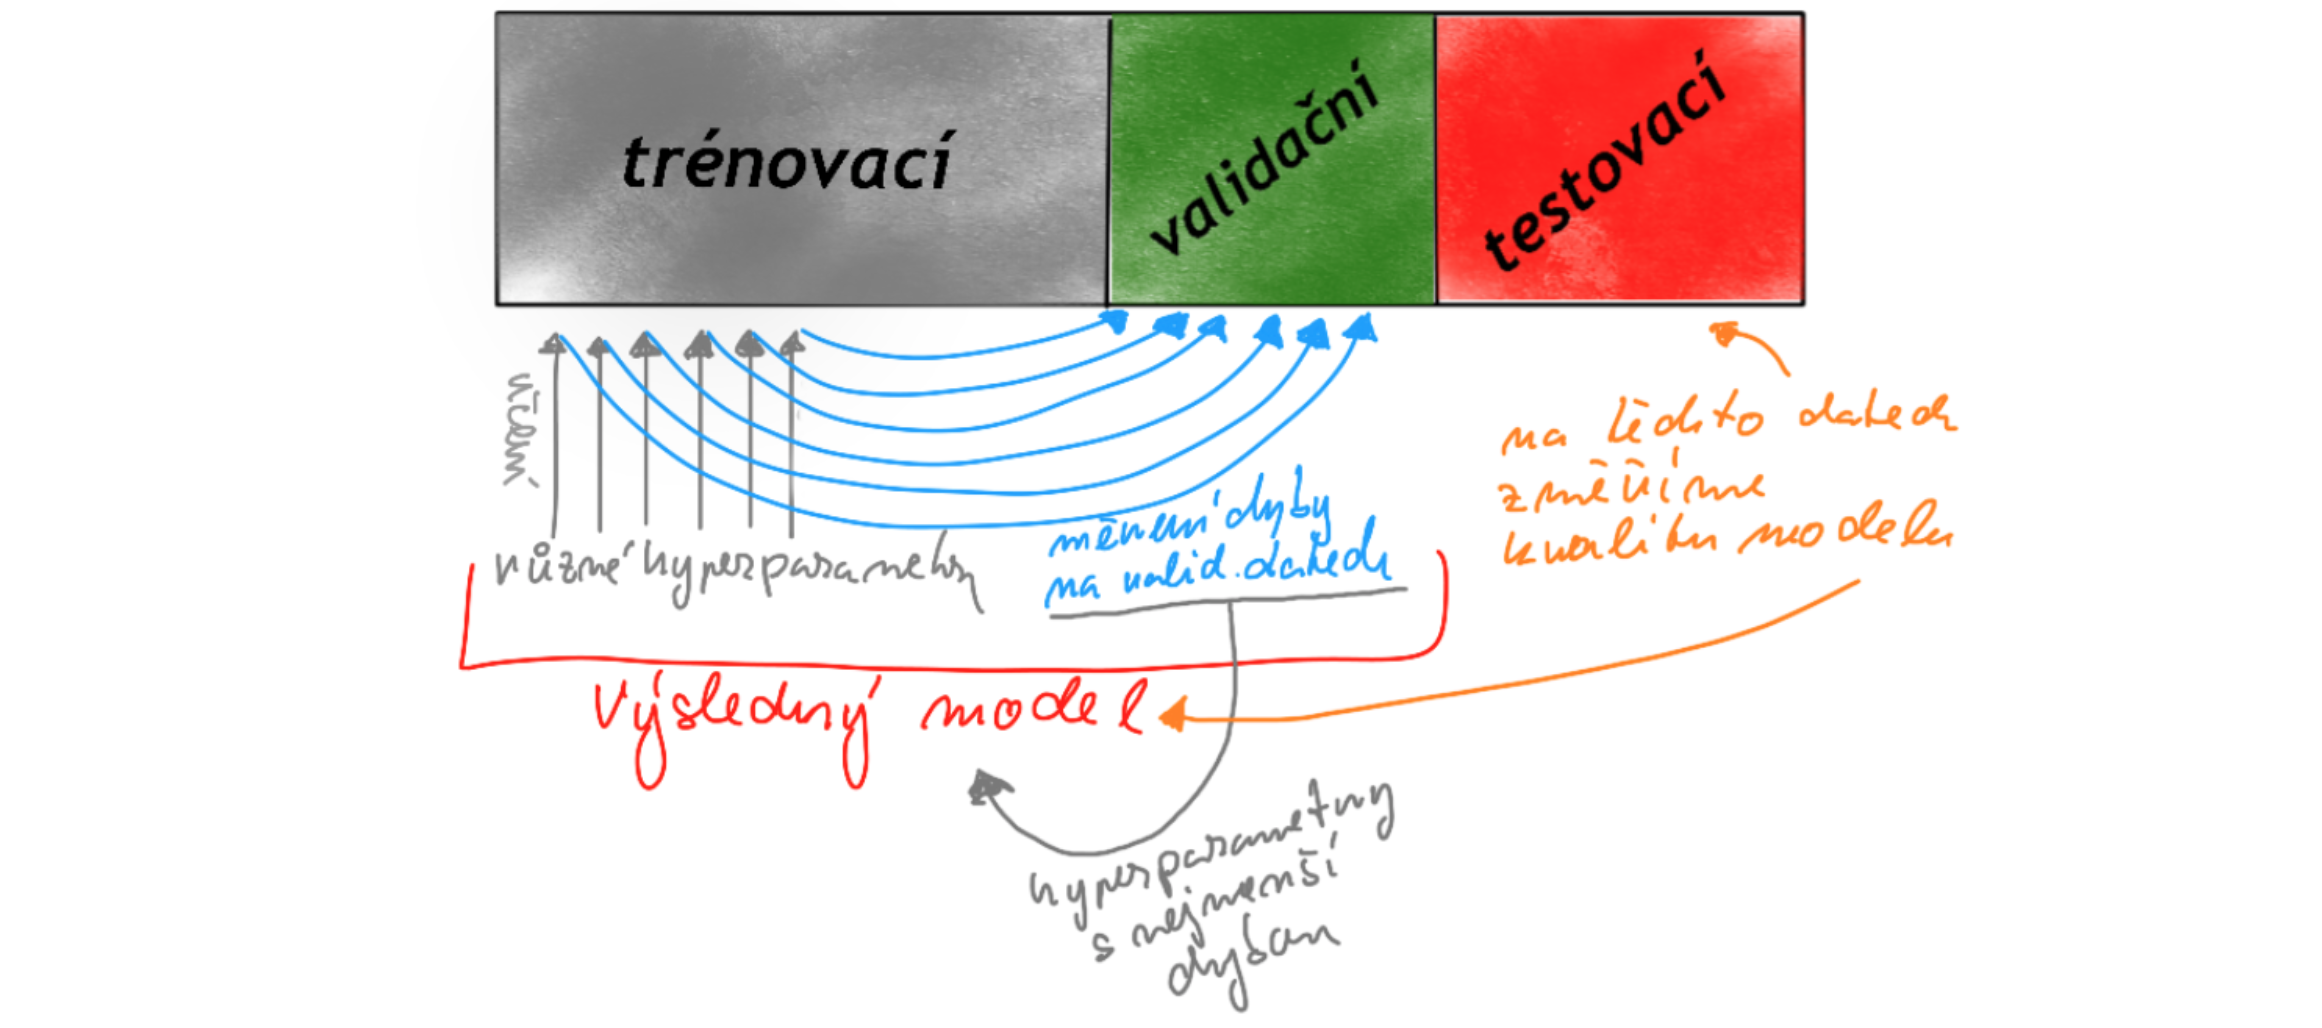 trénovací
validační
testovací
učení
různé hyperparametry
měření chyby
na valid. datech
na těchto datech
změříme
kvalitu modelu
Výsledný model
hyperparametry
s nejmenší
chybou